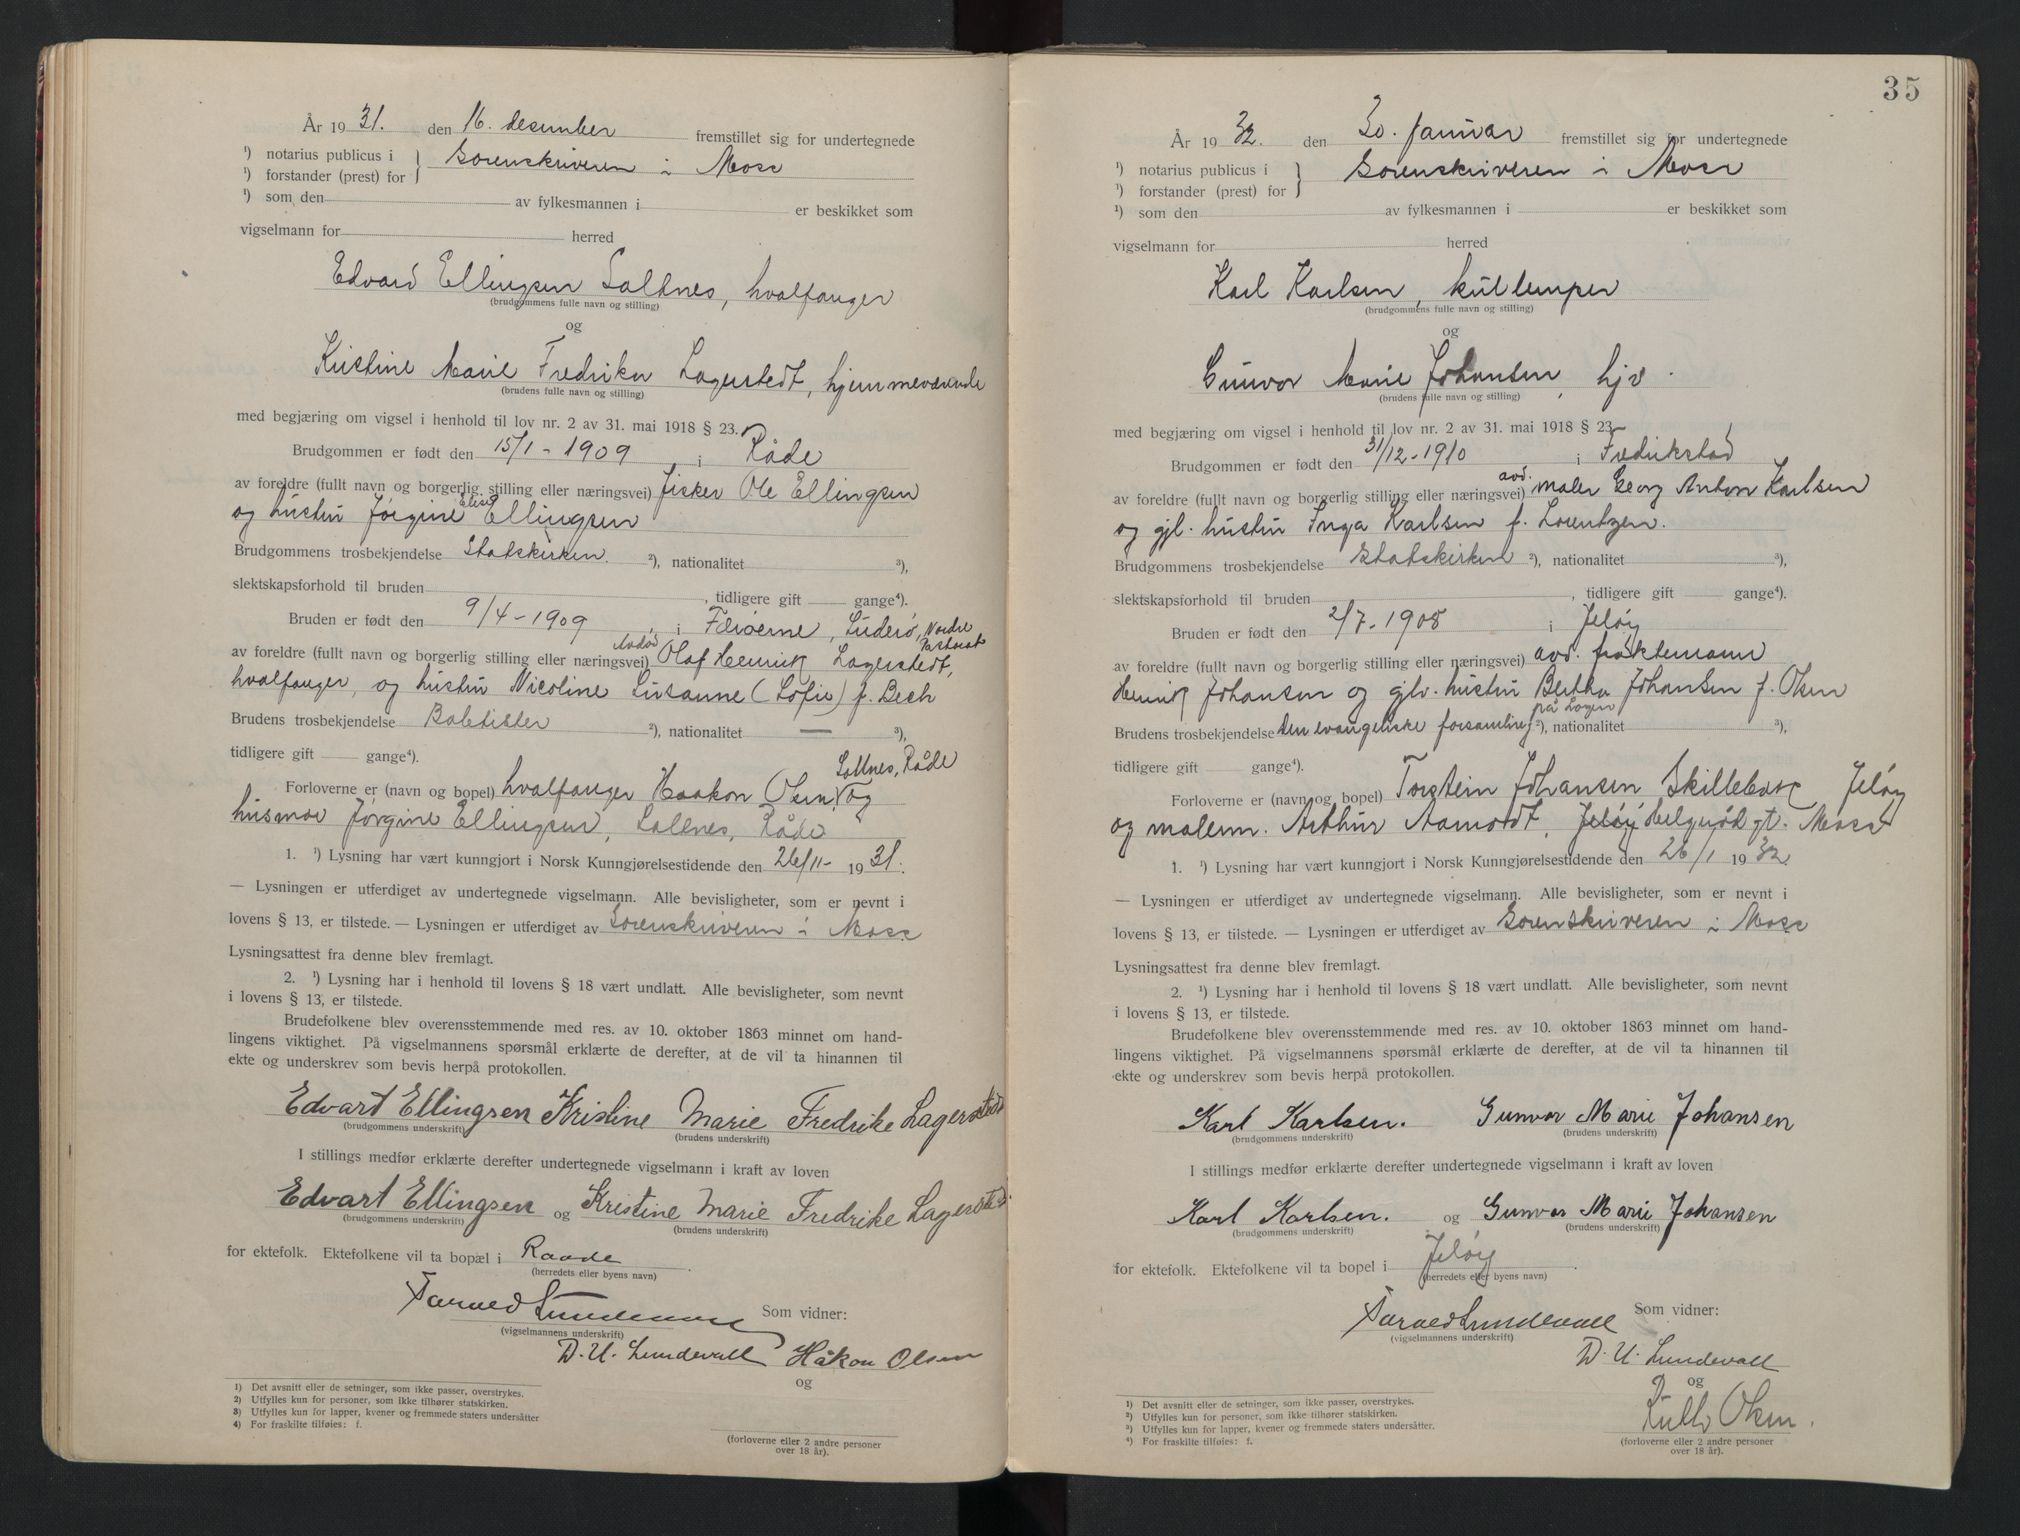 År 19 31. den 16. desember fremstillet sig for undertegnede
¹) notarius publicus i } Sorenskriveren i Moss
¹) forstander (prest) for
¹) som den av fylkesmannen i er beskikket som
vigselmann for herred
Edvard Ellingsen Saltnes, hvalfanger
(brudgommens fulle navn og stilling)
og
Kristine Marie Fredrikke Lagerstedt, hjemmeværende
(brudens fulle navn og stilling)
med begjæring om vigsel i henhold til lov nr. 2 av 31. mai 1918 § 23.
Brudgommen er født den 15/1 - 1909 i Råde
av foreldre (fullt navn og borgerlig stilling eller næringsvei) fisker Ole Ellingsen
og hustru Jørgine Elise Ellingsen
Brudgommens trosbekjendelse Statskirken. ²), nationalitet ³),
slektskapsforhold til bruden , tidligere gift gange⁴).
Bruden er født den 9/4 - 1909 , i Færøerne, Suderø, Nordre Pastorat
av foreldre (fullt navn og borgerlig stilling eller næringsvei) Avdød Olaf Henrik Lagerstedt,
hvalfanger, og hustru Nicoline Susanne (Sofie) f. Bech
Brudens trosbekjendelse Babtister ²), nationalitet — ³),
tidligere gift gange⁴).
Forloverne er (navn og bopel) hvalfanger Haakon Olsen, Saltnes, Råde og
husmor Jørgine Ellingsen, Saltnes, Råde
1. ¹) Lysning har vært kunngjort i Norsk Kunngjørelsestidende den 26/11- 19 31.
— Lysningen er utferdiget av undertegnede vigselmann. Alle bevisligheter, som er nevnt i
lovens § 13, er tilstede. — Lysningen er utferdiget av Sorenskriveren i Moss
Lysningsattest fra denne blev fremlagt.
2. ¹) Lysning har i henhold til lovens § 18 vært undlatt. Alle bevisligheter, som nevnt
i lovens § 13, er tilstede.
Brudefolkene blev overensstemmende med res. av 10. oktober 1863 minnet om hand-
lingens viktighet. På vigselmannens spørsmål erklærte de derefter, at de vil ta hinannen til
ekte og underskrev som bevis herpå protokollen.
Edvart Ellingsen Kristine Marie Fredrike Lagerstedt
(brudgommens underskrift) (brudens underskrift)
I stillings medfør erklærte derefter undertegnede vigselmann i kraft av loven
Edvart Ellingsen og Kristine Marie Fredrike Lagerstedt
(brudgommens underskrift) (brudens underskrift)
for ektefolk. Ektefolkene vil ta bopæl i Raade
(herredets eller byens navn)
Lundevall Som vidner:
(vigselmannens underskrift)
D. U. Lundevall Håkon Olsen
og
1) Det avsnitt eller de setninger, som ikke passer, overstrykes.
2) Utfylles kun for personer, som ikke tilhører statskirken.
3) Utfylles kun for lapper, kvener og fremmede staters undersåtter
4) For fraskilte tilføies: f.
(forloverne eller 2 andre personer
over 18 år).
35
År 19 32. den 30. januar fremstillet sig for undertegnede
¹) notarius publicus i } Sorenskriveren i Moss
¹) forstander (prest) for
¹) som den av fylkesmannen i er beskikket som
vigselmann for herred
Karl Karlsen, kullemper
(brudgommens fulle navn og stilling)
og
Gunvor Marie Johansen, hjv.
(brudens fulle navn og stilling)
med begjæring om vigsel i henhold til lov nr. 2 av 31. mai 1918 § 23.
Brudgommen er født den 31/12 - 1910 i Fredrikstad
av foreldre (fullt navn og borgerlig stilling eller næringsvei) avd. maler Georg Anton Karlsen
og gjl. hustru Inga Karlsen f. Lorentzen.
Brudgommens trosbekjendelse Statskirken ²), nationalitet ³),
slektskapsforhold til bruden , tidligere gift gange⁴).
Bruden er født den 2/7 - 1908 i Jeløy
av foreldre (fullt navn og borgerlig stilling eller næringsvei) avd. fraktemann
Henrik Johansen og gjlv. hustru Bertha Johansen f. Olsen
Brudens trosbekjendelse den evangeliske forsamling på Logen ²), nationalitet ³),
tidligere gift gange⁴).
Forloverne er (navn og bopel) Torstein Johansen Skillebæk Jeløy
og malerm. Arthur Aamodt, Jeløy Helgerød gt. Moss
1. ¹) Lysning har vært kunngjort i Norsk Kunngjørelsestidende den 26/1 19 32
— Lysningen er utferdiget av undertegnede vigselmann. Alle bevisligheter, som er nevnt i
lovens § 13, er tilstede. — Lysningen er utferdiget av Sorenskriveren i Moss
Lysningsattest fra denne blev fremlagt.
2. ¹) Lysning har i henhold til lovens § 18 vært undlatt. Alle bevisligheter, som nevnt
i lovens § 13, er tilstede.
Brudefolkene blev overensstemmende med res. av 10. oktober 1863 minnet om hand-
lingens viktighet. På vigselmannens spørsmål erklærte de derefter, at de vil ta hinannen til
ekte og underskrev som bevis herpå protokollen.
Karl Karlsen. Gunvor Marie Johansen
(brudgommens underskrift) (brudens underskrift)
I stillings medfør erklærte derefter undertegnede vigselmann i kraft av loven
Karl Karlsen. og Gunvor Marie Johansen
(brudgommens underskrift) (brudens underskrift)
for ektefolk. Ektefolkene vil ta bopel i Jeløy
(herredets eller byens navn)
Lundevall Som vidner:
(vigselmannens underskrift)
D. U. Lundevall
og
Olsen.
1) Det avsnitt eller de setninger, som ikke passer, overstrykes.
²) Utfylles kun for personer, som ikke tilhører statskirken.
³) Utfylles kun for lapper, kvener og fremmede staters undersåtter.
⁴) For fraskilte tilføies: f.
(forloverne eller 2 andre personer
over 18 år).